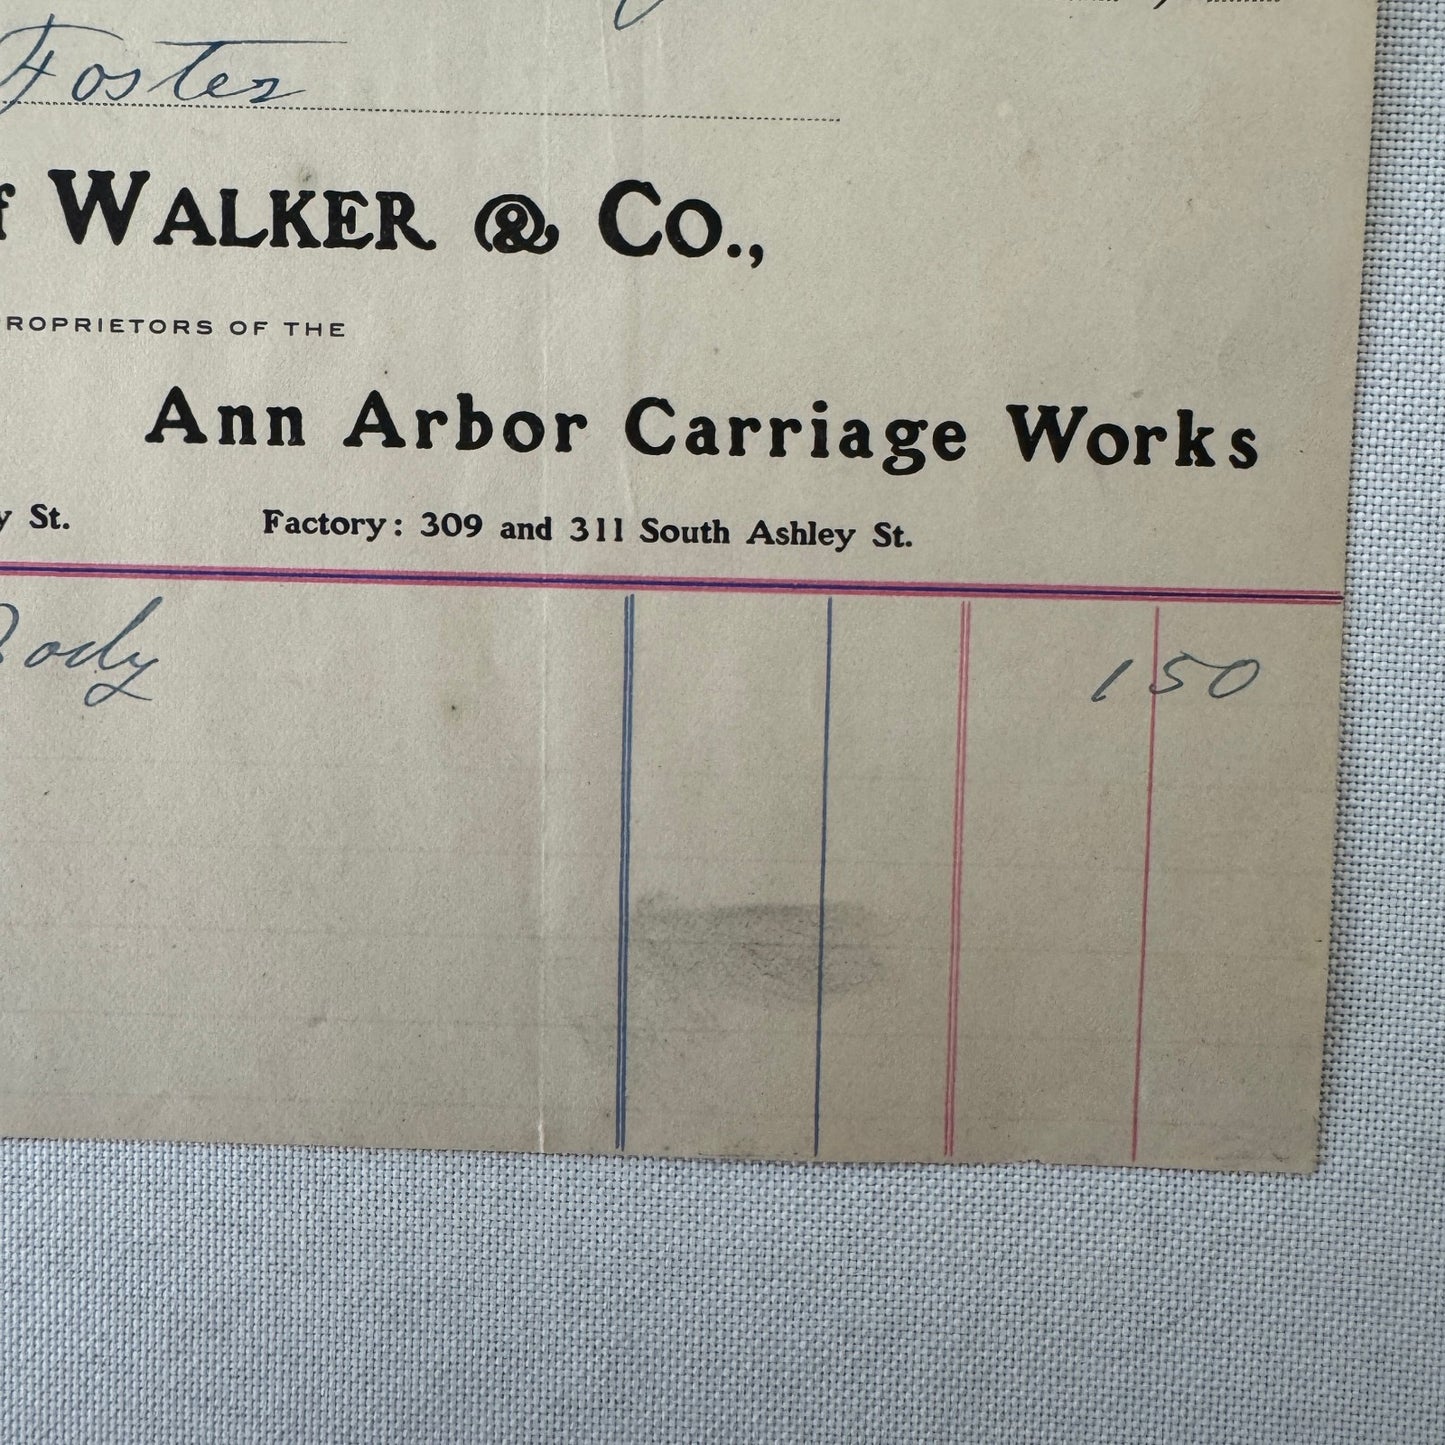 Foster
f WALKER & Co.,
ROPRIETORS OF THE
Ann Arbor Carriage Works
y St. Factory: 309 and 311 South Ashley St.
Body 150